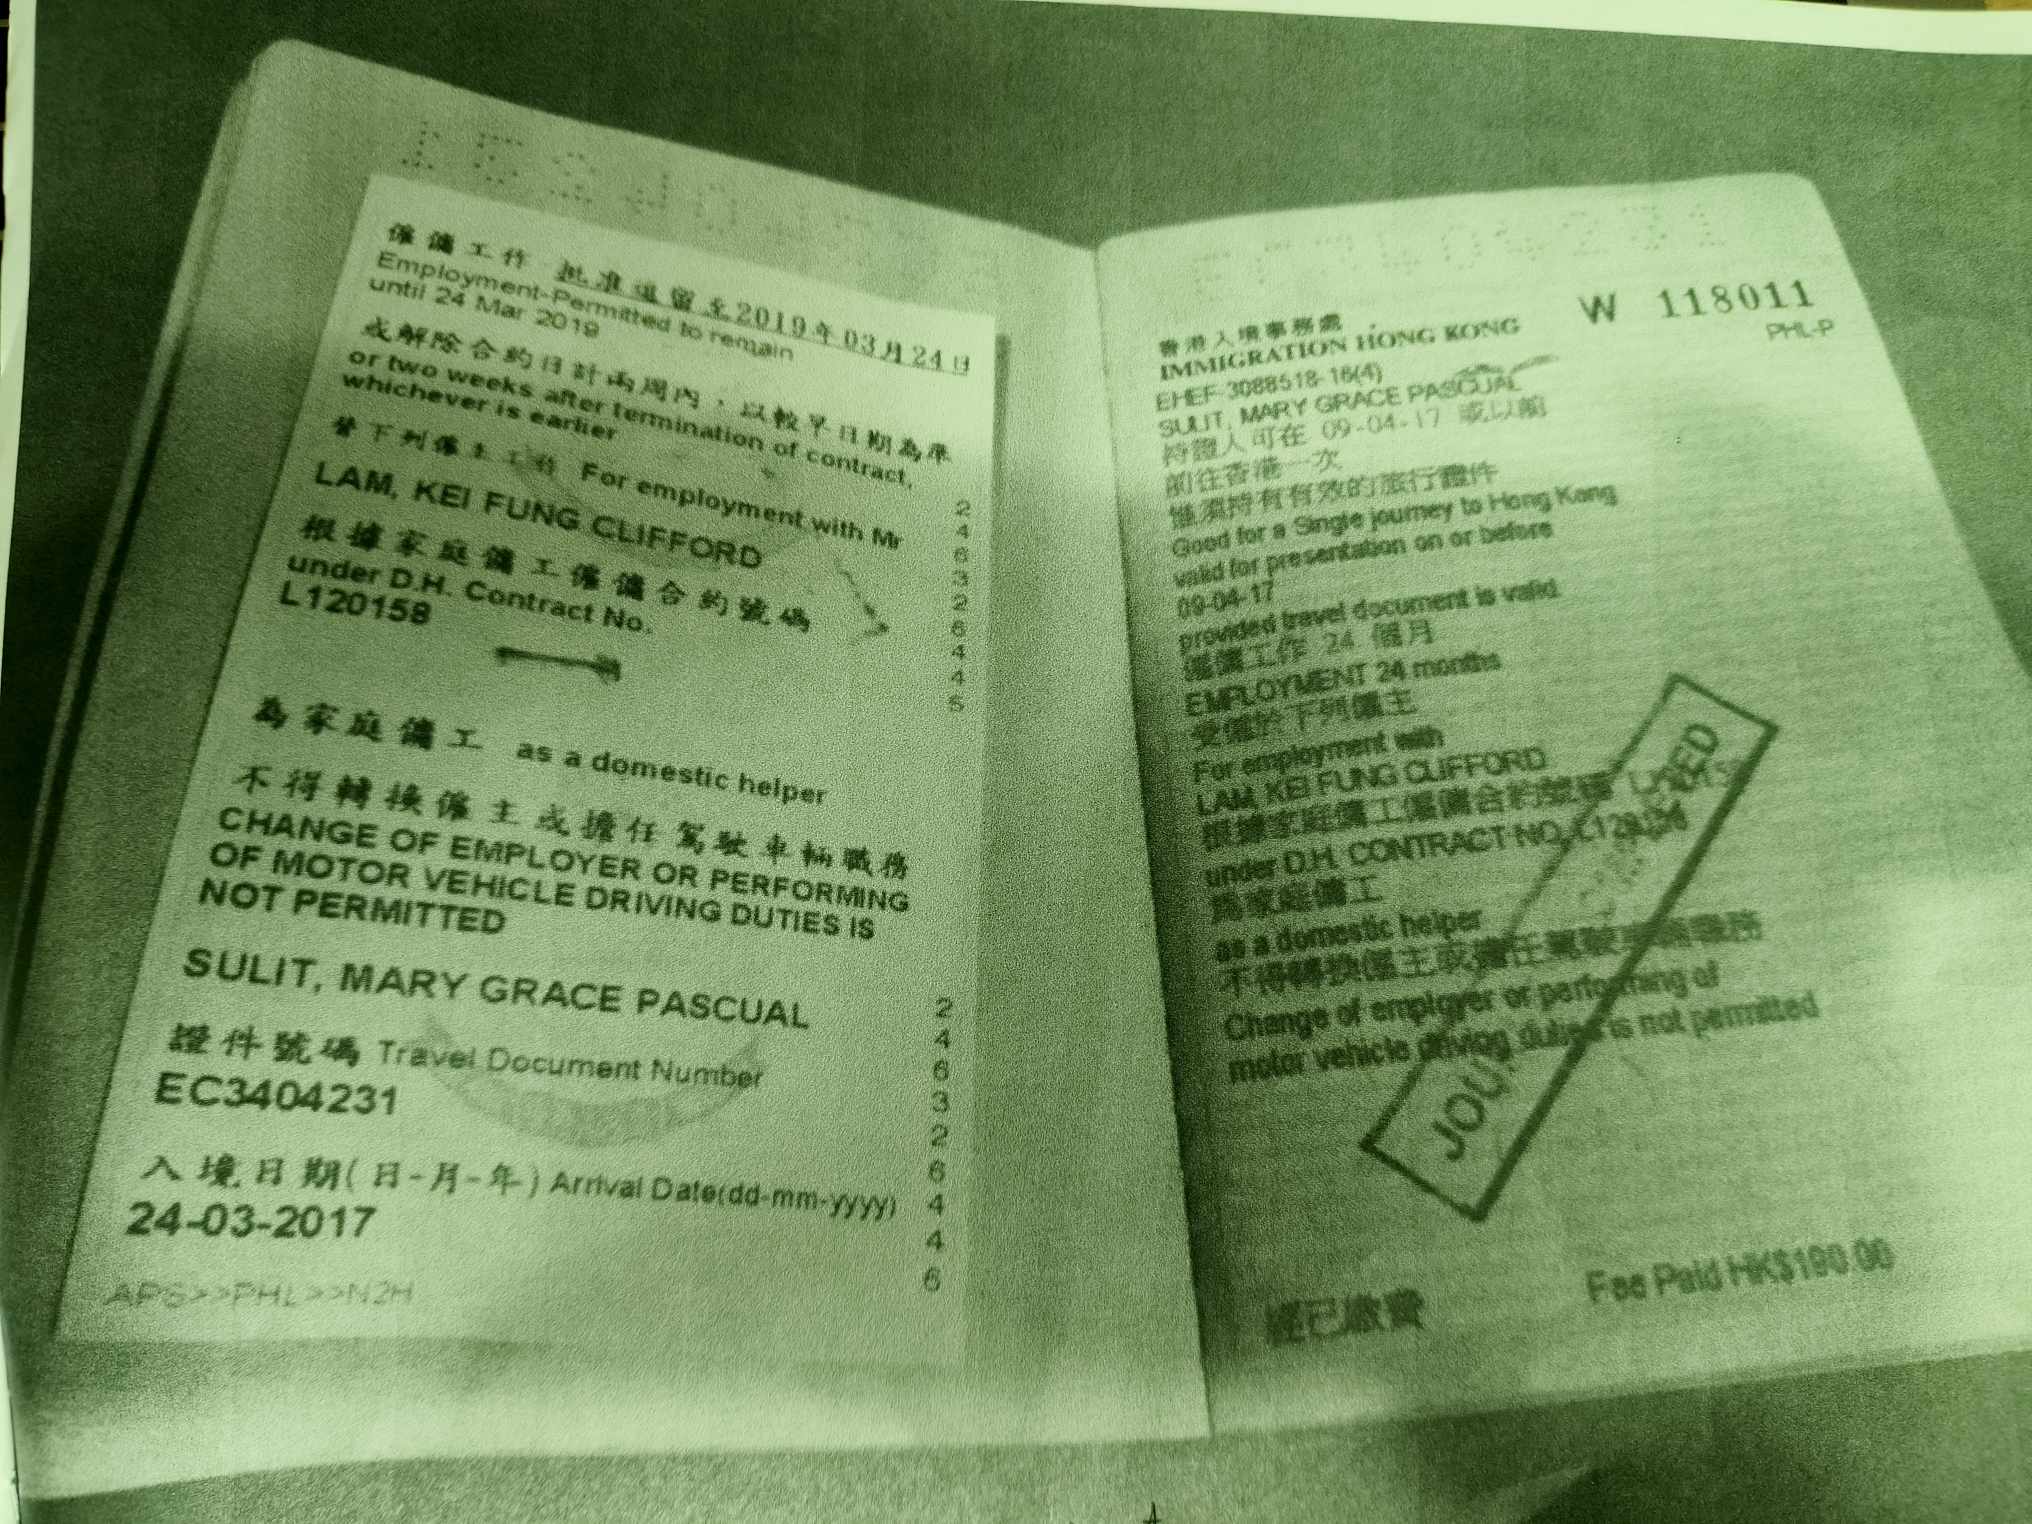 僱傭工作 批准逗留至2019年03月24日
Employment-Permitted to remain
until 24 Mar 2019
或解除合約日計兩周內，以較早日期為準
or two weeks after termination of contract,
whichever is earlier
替下列僱主工作 For employment with Mr
LAM, KEI FUNG CLIFFORD
根據家庭傭工僱傭合約號碼
under D.H. Contract No.
L120158
246326445
為家庭傭工 as a domestic helper
不得轉換僱主或擔任駕駛車輛職務
CHANGE OF EMPLOYER OR PERFORMING
OF MOTOR VEHICLE DRIVING DUTIES IS
NOT PERMITTED
SULIT, MARY GRACE PASCUAL
證件號碼 Travel Document Number
EC3404231
入境日期(日-月-年) Arrival Date(dd-mm-yyyy)
24-03-2017
246326446
APS>>PHL>>N2H
W 118011
PHL-P
香港入境事務處
IMMIGRATION HONG KONG
EHEF-3088518-16(4)
SULIT, MARY GRACE PASCUAL
持證人可在 09-04-17 或以前
前往香港一次
惟須持有有效的旅行證件
Good for a Single journey to Hong Kong
valid for presentation on or before
09-04-17
provided travel document is valid
僱傭工作 24 個月
EMPLOYMENT 24 months
受僱於下列僱主
For employment with
LAM, KEI FUNG CLIFFORD
根據家庭傭工僱傭合約號碼
under D.H. CONTRACT NO.
為家庭傭工
as a domestic helper
不得轉換僱主或擔任駕駛車輛職務
Change of employer or performing of
motor vehicle driving duties is not permitted
經已繳費
Fee Paid HK$190.00